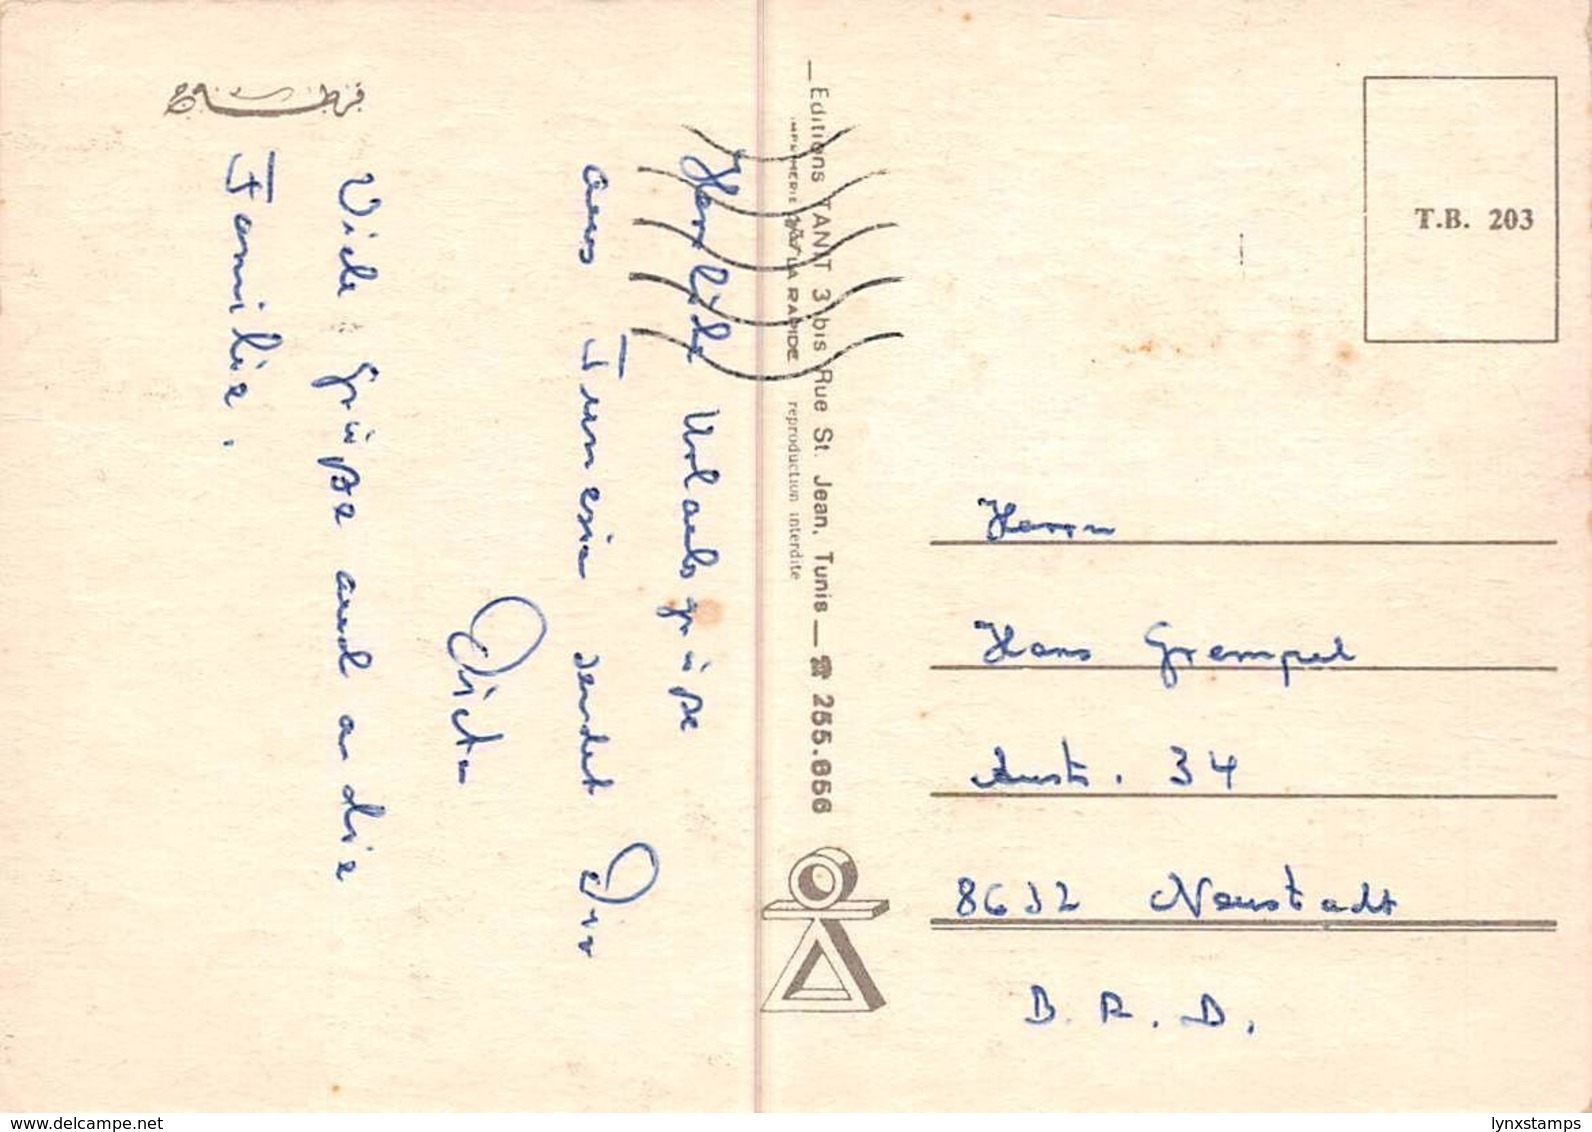 Herzliche Urlaubsgrüße
aus Tunesien sendet Dir
Dieter
Viele Grüße auch an die
Familie.
— Editions TANIT 3 bis Rue St. Jean, Tunis — ☎ 255.066
IMPRIMERIE LA RAPIDE reproduction interdite
T.B. 203
Herrn
Hans Grempel
34
8632 Neustadt
B. R. D.
delcampe.net
lynxstamps